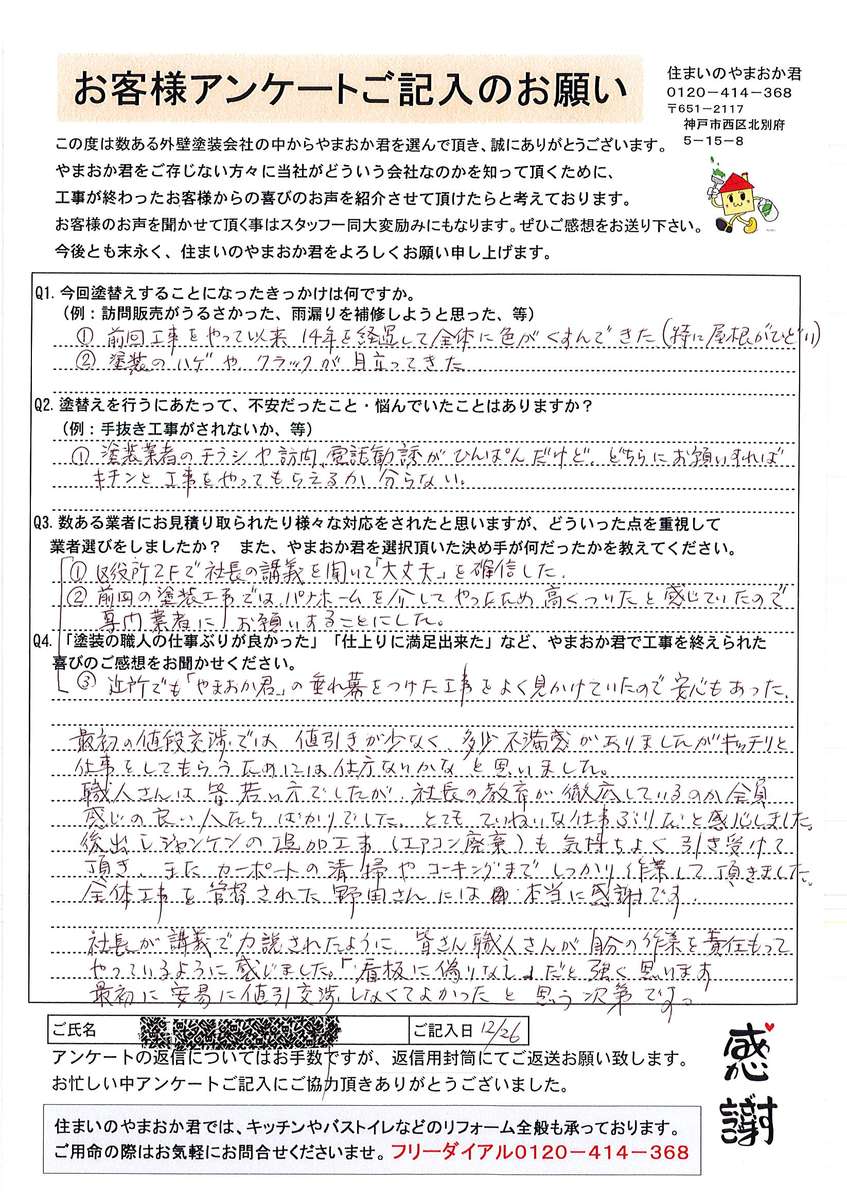 お客様アンケートご記入のお願い
住まいのやまおか君
0120-414-368
〒651-2117
神戸市西区北別府
5-15-8
この度は数ある外壁塗装会社の中からやまおか君を選んで頂き、誠にありがとうございます。
やまおか君をご存じない方々に当社がどういう会社なのかを知って頂くために、
工事が終わったお客様からの喜びのお声を紹介させて頂けたらと考えております。
お客様のお声を聞かせて頂く事はスタッフ一同大変励みにもなります。ぜひご感想をお送り下さい。
今後とも末永く、住まいのやまおか君をよろしくお願い申し上げます。
Q1. 今回塗替えすることになったきっかけは何ですか。
(例：訪問販売がうるさかった、雨漏りを補修しようと思った、等)
① 前回工事をやって以来 14年を経過して全体に色がくすんできた(特に屋根がひどい)
② 塗装のハゲや クラックが目立ってきた
Q2. 塗替えを行うにあたって、不安だったこと・悩んでいたことはありますか？
(例：手抜き工事がされないか、等)
① 塗装業者のチラシや訪問、電話勧誘がひんぱんだけど、どちらにお願いすれば
キチンと工事をやってもらえるか分らない。
Q3. 数ある業者にお見積り取られたり様々な対応をされたと思いますが、どういった点を重視して
業者選びをしましたか？ また、やまおか君を選択頂いた決め手が何だったかを教えてください。
① 区役所2Fで社長の講義を聞いて「大丈夫」を確信した.
② 前回の塗装工事では パナホームを介してやったため 高くついたと感じていたので
専門業者に お願いすることにした。
Q4. 「塗装の職人の仕事ぶりが良かった」「仕上りに満足出来た」など、やまおか君で工事を終えられた
喜びのご感想をお聞かせください。
③ 近所でも「やまおか君」の垂れ幕をつけた工事をよく見かけていたので安心もあった.
最初の値段交渉では 値引きが少なく 多少不満感がありましたがキッチリと
仕事をしてもらうためには仕方ないかなと思いました。
職人さんは皆若い方でしたが、社長の教育が徹底しているのか全員
感じの良い人たちばかりでした。とてもていねいな仕事ぶりだと感じました。
後出しジャンケンの追加工事(エアコン廃棄)も気持ちよく引き受けて
頂き、また カーポートの清掃やコーキングまでしっかり作業して頂きました。
全体工事を管督された野田さんには 本当に感謝です.
社長が講義で力説されたように 皆さん職人さんが自分の作業を責任もって
やっているように感じました。「看板に偽りなし」だと強く思います
最初に安易に値引交渉しなくてよかったと思う次第です。
ご氏名
ご記入日 12/26
アンケートの返信についてはお手数ですが、返信用封筒にてご返送お願い致します。
お忙しい中アンケートご記入にご協力頂きありがとうございました。
感謝
住まいのやまおか君では、キッチンやバストイレなどのリフォーム全般も承っております。
ご用命の際はお気軽にお問合せくださいませ。フリーダイアル0120-414-368